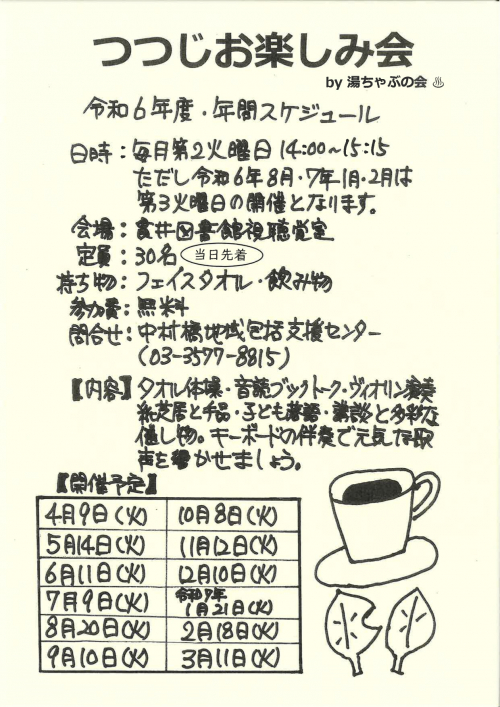 つつじお楽しみ会
by 湯ちゃぶの会 ♨
令和6年度・年間スケジュール
日時：毎月第2火曜日 14:00～15:15
ただし令和6年8月・7年1月・2月は
第3火曜日の開催となります。
会場：貫井図書館視聴覚室
定員：30名 当日先着
持ち物：フェイスタオル・飲み物
参加費：無料
問合せ：中村橋地域包括支援センター
(03-3577-8815)
【内容】タオル体操・音読ブックトーク・ヴィオリン演奏
紙芝居と手品・子ども落語・講談と多彩な
催し物。キーボードの伴奏で元気な歌
声を響かせましょう。
【開催予定】
4月9日(火) 10月8日(火)
5月14日(火) 11月12日(火)
6月11日(火) 12月10日(火)
7月9日(火) 令和7年1月21日(火)
8月20日(火) 2月18日(火)
9月10日(火) 3月11日(火)